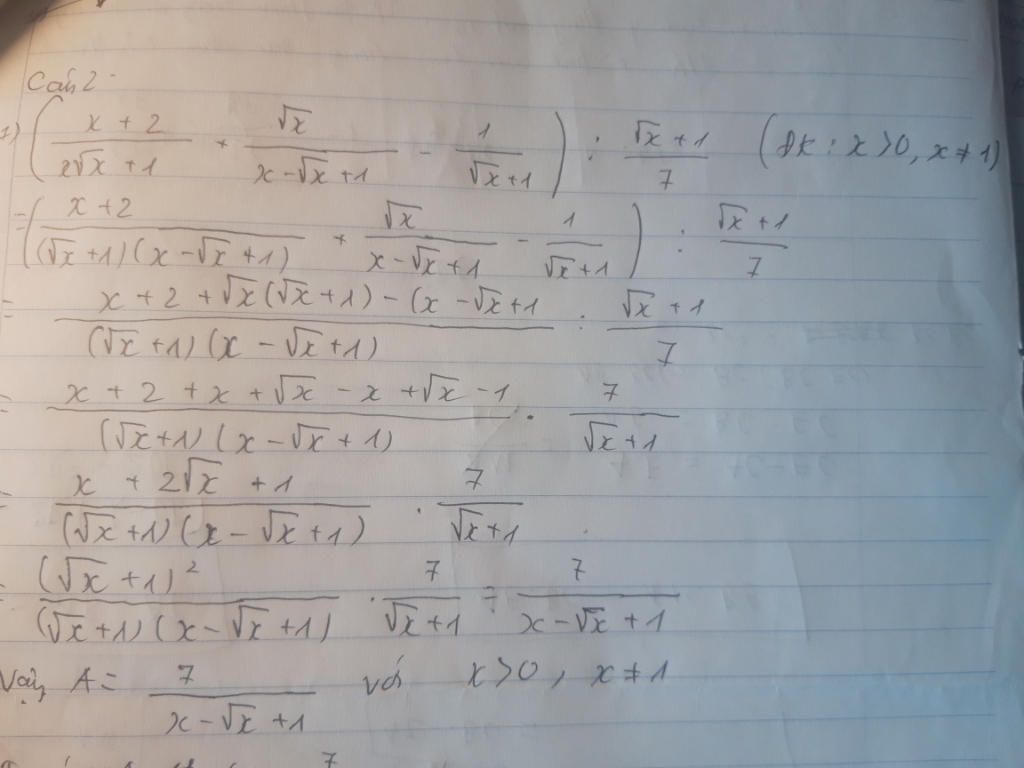 Câu 2
1) ( (x + 2)/(x√x + 1) + √x/(x - √x + 1) - 1/(√x + 1) ) : (√x + 1)/7 (ĐK : x > 0, x ≠ 1)
= ( (x + 2)/((√x + 1)(x - √x + 1)) + √x/(x - √x + 1) - 1/(√x + 1) ) : (√x + 1)/7
= (x + 2 + √x(√x + 1) - (x - √x + 1)/((√x + 1)(x - √x + 1)) : (√x + 1)/7
= (x + 2 + x + √x - x + √x - 1)/((√x + 1)(x - √x + 1)) . 7/(√x + 1)
= (x + 2√x + 1)/((√x + 1)(x - √x + 1)) . 7/(√x + 1)
= (√x + 1)²/((√x + 1)(x - √x + 1)) . 7/(√x + 1) = 7/(x - √x + 1)
Vậy A = 7/(x - √x + 1) với x > 0, x ≠ 1
7